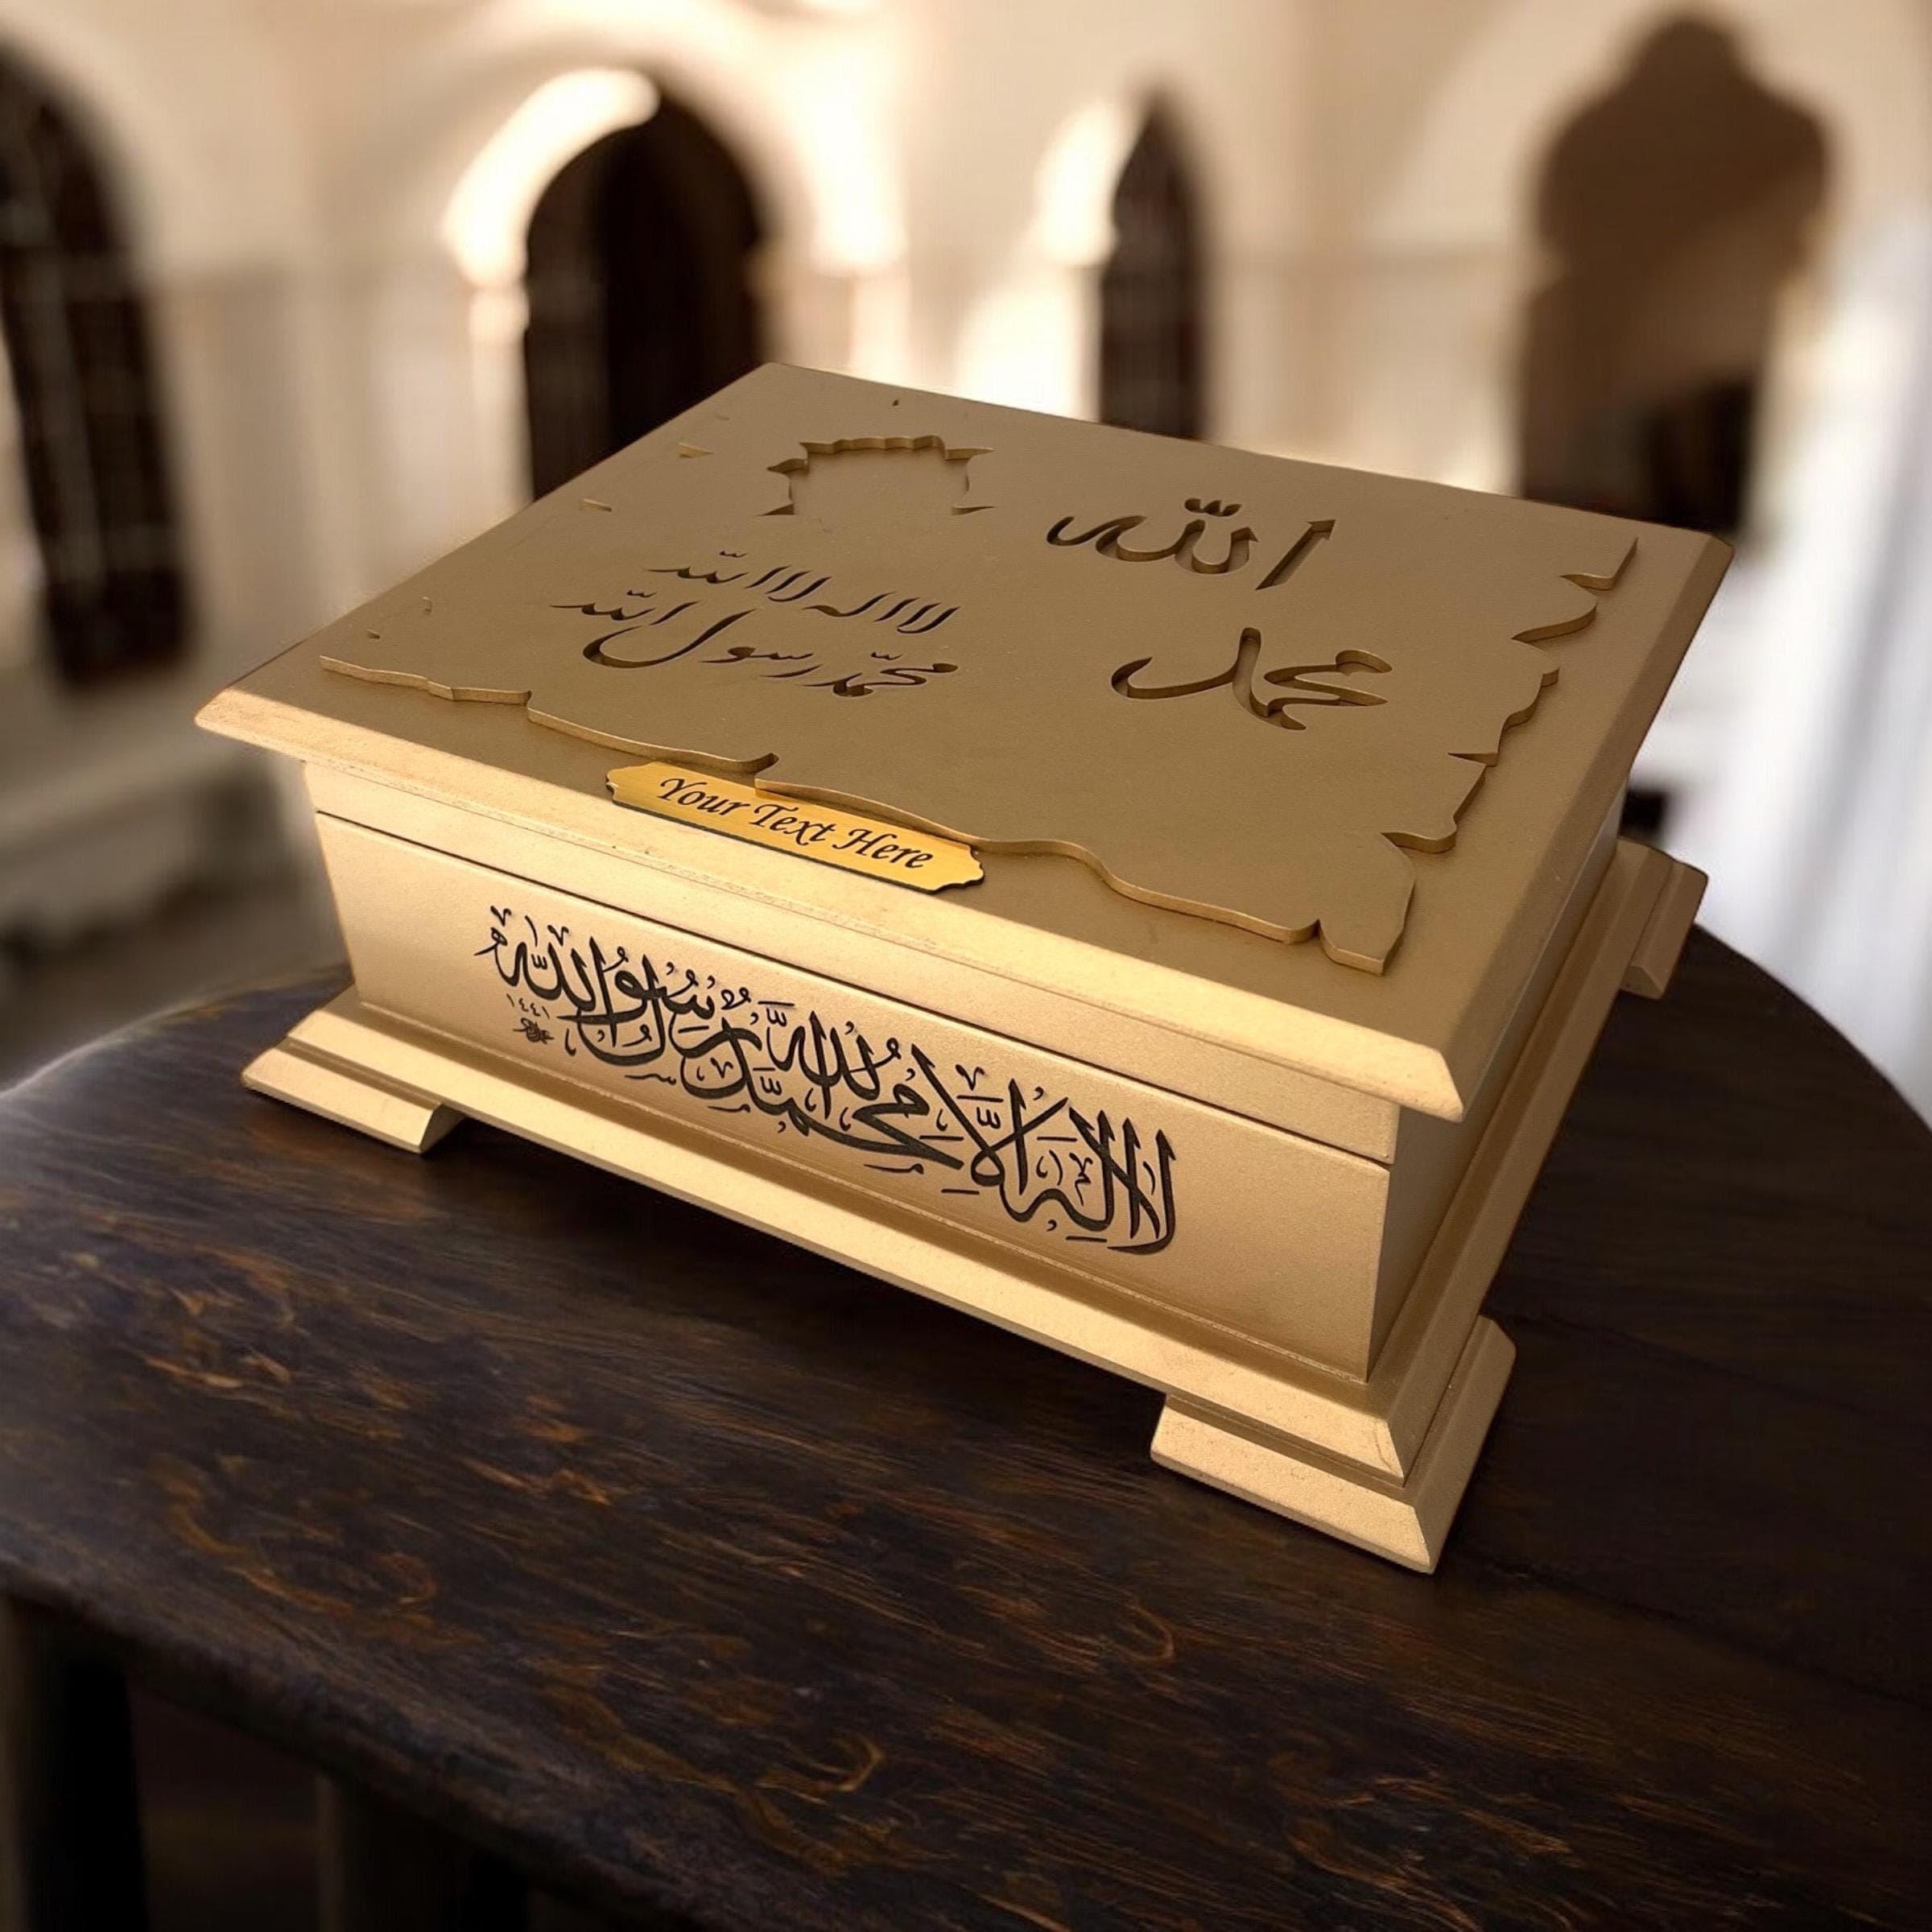 الله
محمد
لا اله الا الله
محمّد رسول الله
Your Text Here
لَا إِلٰهَ إِلَّا اللّٰهُ مُحَمَّدٌ رَسُولُ اللّٰهِ
١٤٤١